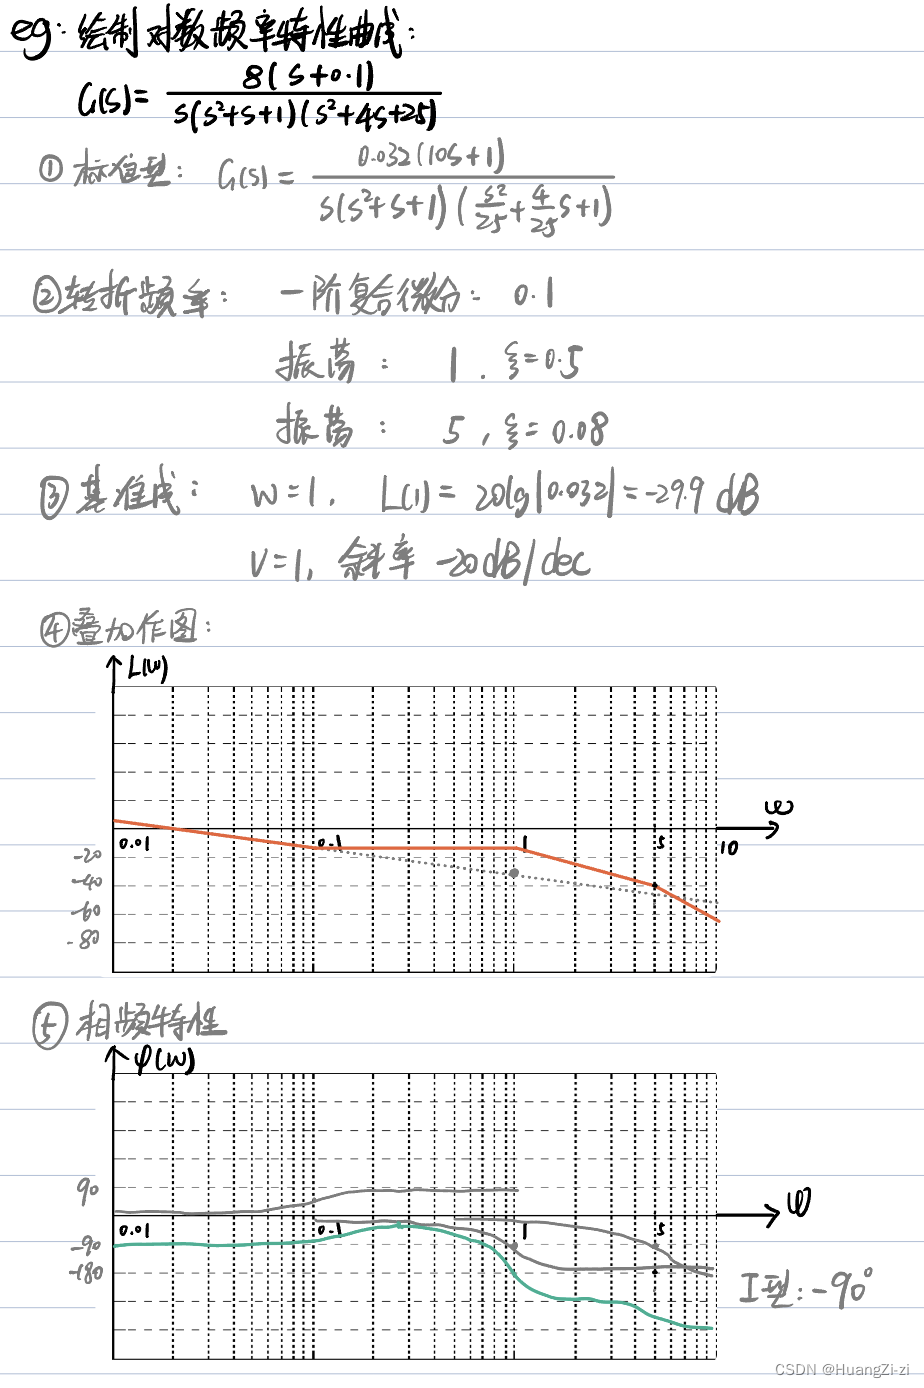 eg: 绘制对数频率特性曲线:
G(s)= 8(s+0.1) / s(s²+s+1)(s²+4s+25)
① 标准型: G(s) = 0.032(10s+1) / s(s²+s+1)(s²/25+4/25s+1)
②转折频率: 一阶复合微分: 0.1
振荡: 1. ξ=0.5
振荡: 5, ξ=0.08
③ 基准线: w=1, L(1)= 20lg|0.032|=-29.9 dB
V=1, 斜率 -20dB/dec
④叠加作图:
L(w)
w
0.01 0.1 1 5 10
-20
-40
-60
-80
⑤ 相频特性
φ(w)
90
w
0.01 0.1 1 5
-90
-180
I型: -90°
CSDN @HuangZi-zi